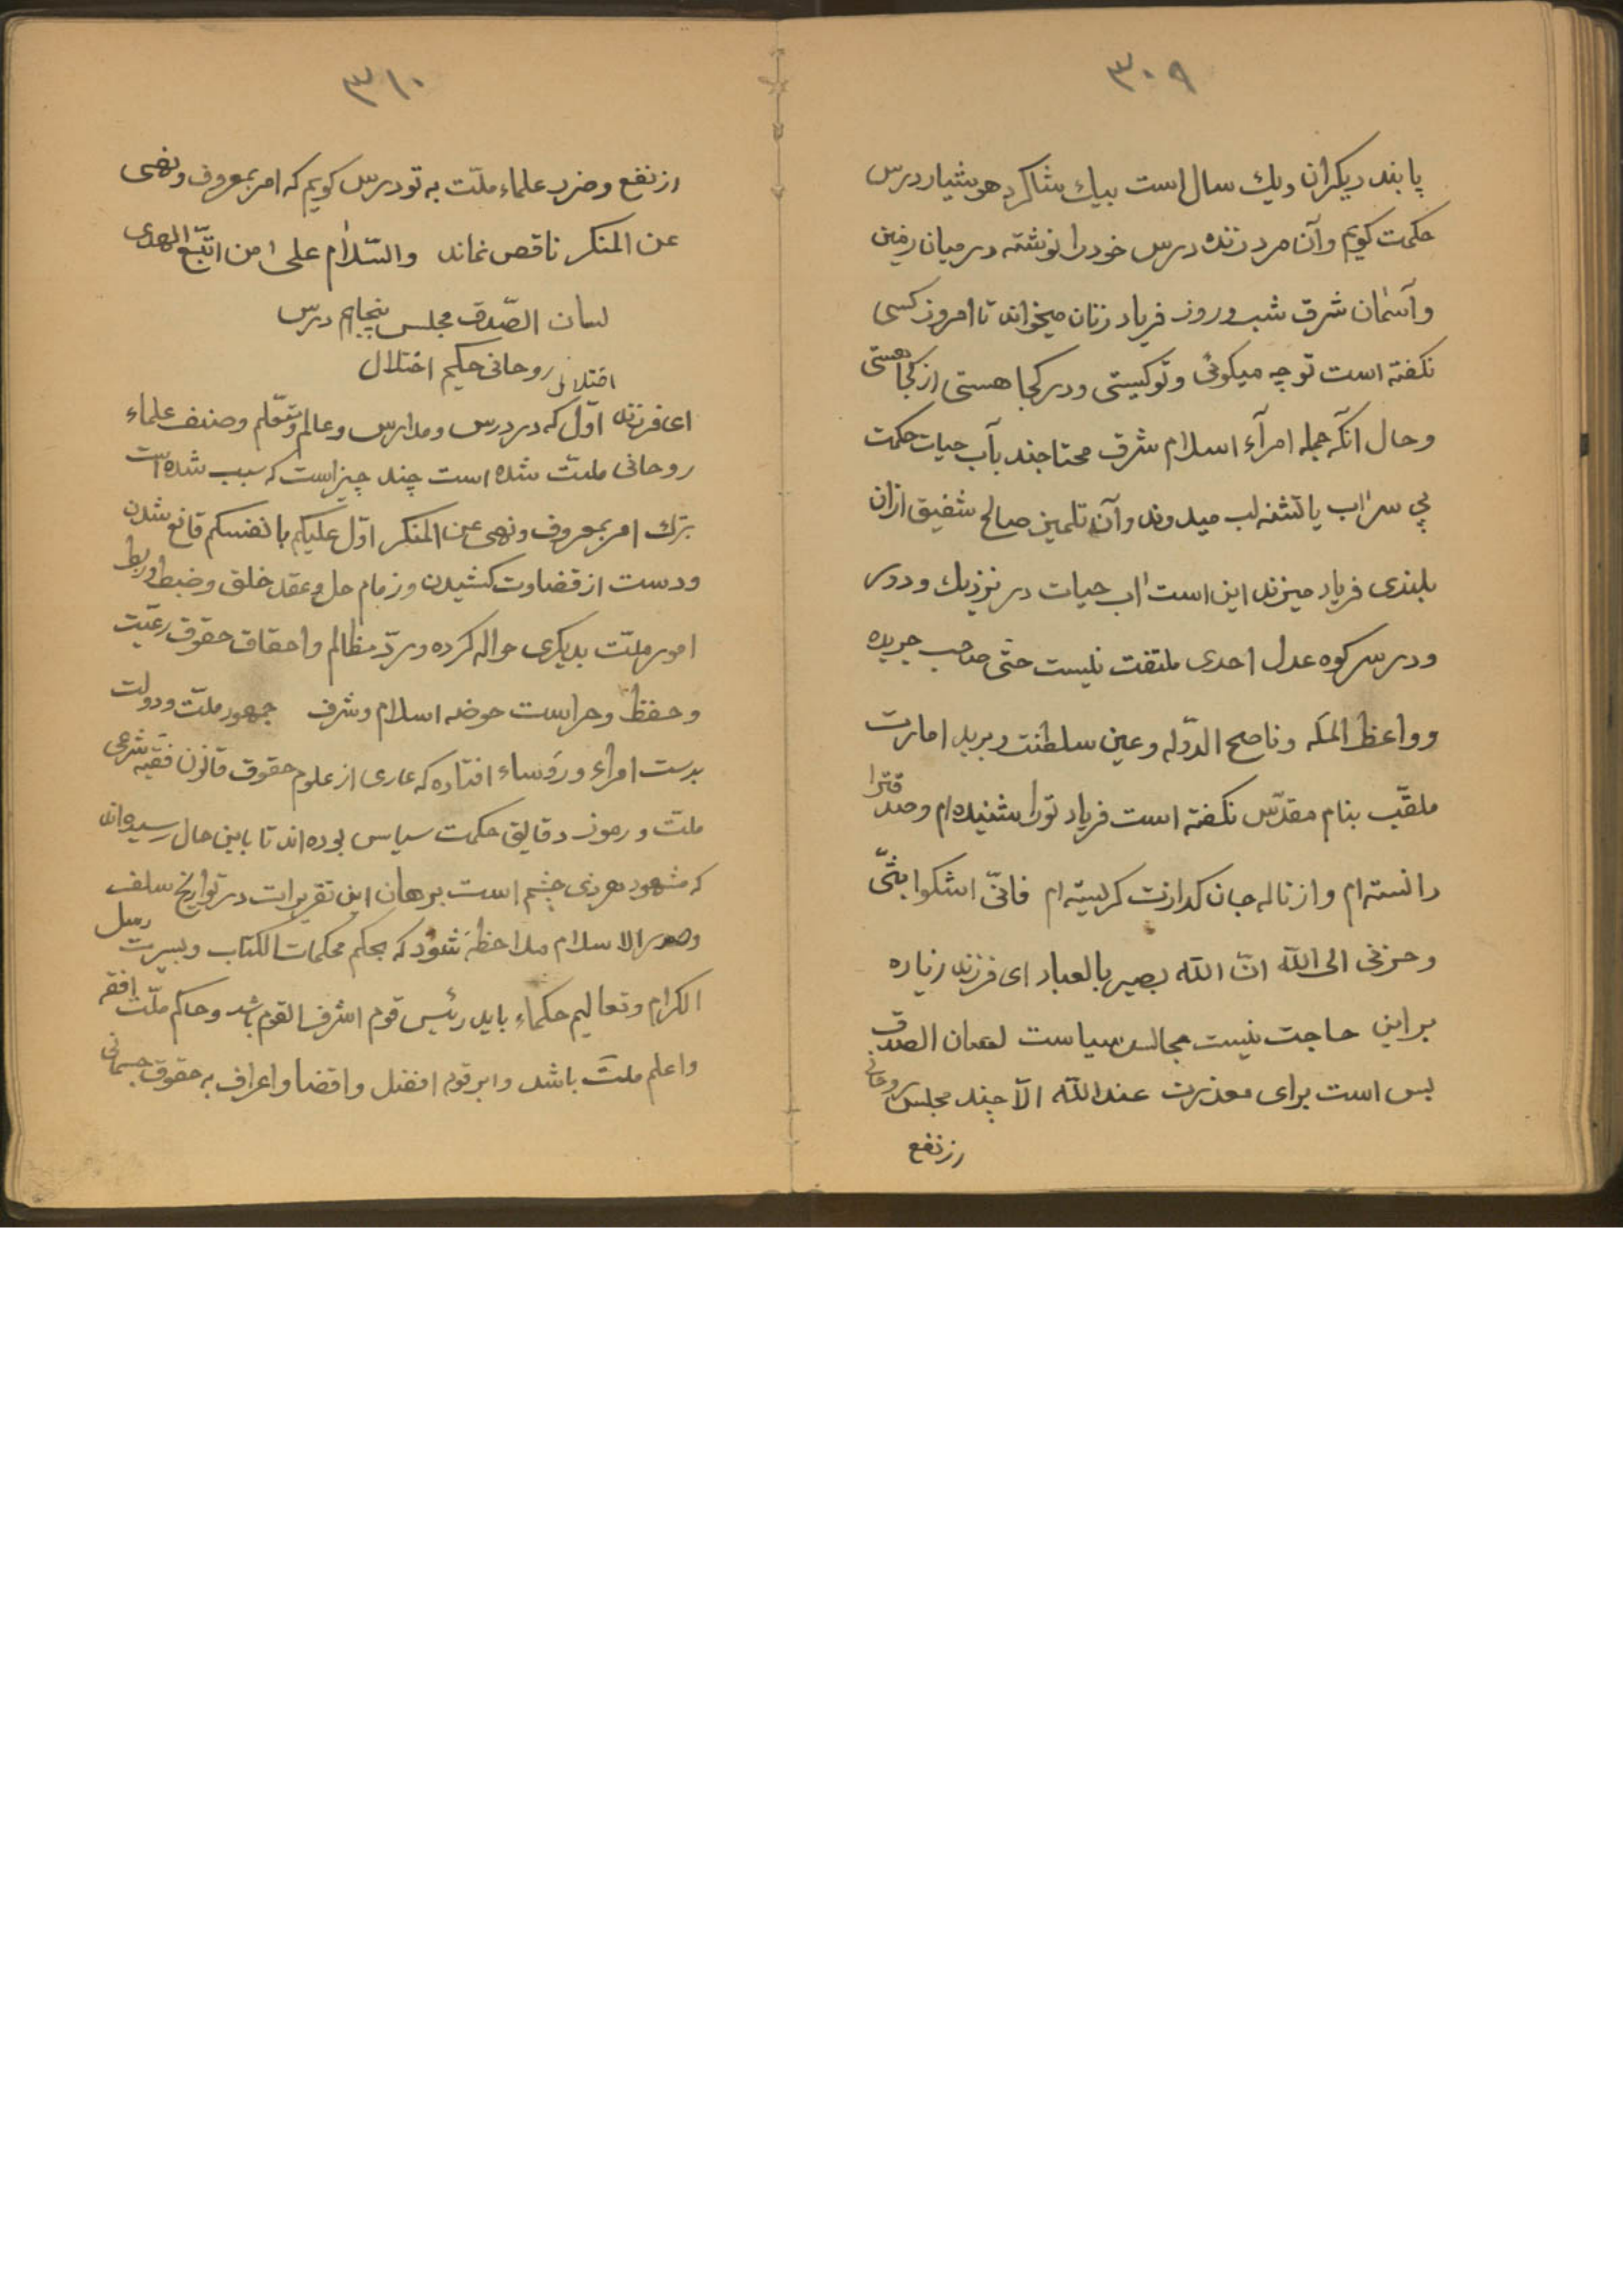 ۳۰۹
پابند دیکران ویك سال است بیك شاکرد هوشیار درس
حکمت کویم وآن مرد زنده درس خود را نوشته در میان زمین
وآسمان شرق شب وروز فریاد زنان میخواند تا امروز کسی
نکفته است تو چه میکوئی وتو کیستی ودر کجا هستی از کجا هستی
وحال آنکه جمله امرآء اسلام شرق محتاجند بآب حیات حکمت
پی سراب با تشنه لب میدوند وآن تلمیذ صالح شفیق ازان
بلندی فریاد میزند این است آب حیات در نزدیك ودور
ودر سر کوه عدل احدی ملتفت نیست حتی صاحب جریده
وواعظ المله وناصح الدوله وعین سلطنت وبرید امارت
ملقب بنام مقدس نکفته است فریاد تورا شنیده ام وصدقترا
دانسته ام واز ناله جان کدازت کریسته ام فانّی اشکوا بثّی
وحزنی الی الله انّ الله بصیر بالعباد ای فرزند زیاده
براین حاجت نیست مجالس سیاست لسان الصدق
بس است برای معذرت عندالله الّا چند مجلس روحانی
از نفع
۳۱۰
از نفع وضرر علماء ملّت به تو درس کویم که امر بمعروف ونهی
عن المنکر ناقص نماند والسّلام علی من اتّبع الهدی
لسان الصّدق مجلس پنجاهم درس
روحانی حکیم اختلال
اختلال
ای فرزند اوّل که در درس ومدارس وعالم ومتعلّم وصنف علماء
روحانی ملّت شده است چند چیز است که سبب شده است
بترك امر بمعروف ونهی عن المنکر اوّل علیکم بانفسکم قانع شدن
ودست از قضاوت کشیدن وزمام حل وعقد خلق وضبط وربط
امور ملّت بدیکری حواله کرده وردّ مظالم واحقاق حقوق رعیّت
وحفظ وحراست حوضه اسلام وشرف جمهور ملّت ودولت
بدست امراء ورؤساء افتاده که عاری از علوم حقوق قانون فقیه شرعی
ملّت ورموز دقایق حکمت سیاسی بوده اند تا باین حال رسیده اند
که مشهود هر ذی چشم است برهان این تقریرات در تواریخ سلف
وصدر الاسلام ملاحظه شود که بحکم محکمات الکتاب وبسیرت رسل
الکرام وتعالیم حکماء باید رئیس قوم اشرف القوم باشد وحاکم ملّت افقه
واعلم ملت باشد وابر قوم افضل واقضا واعراف به حقوق جسمانی